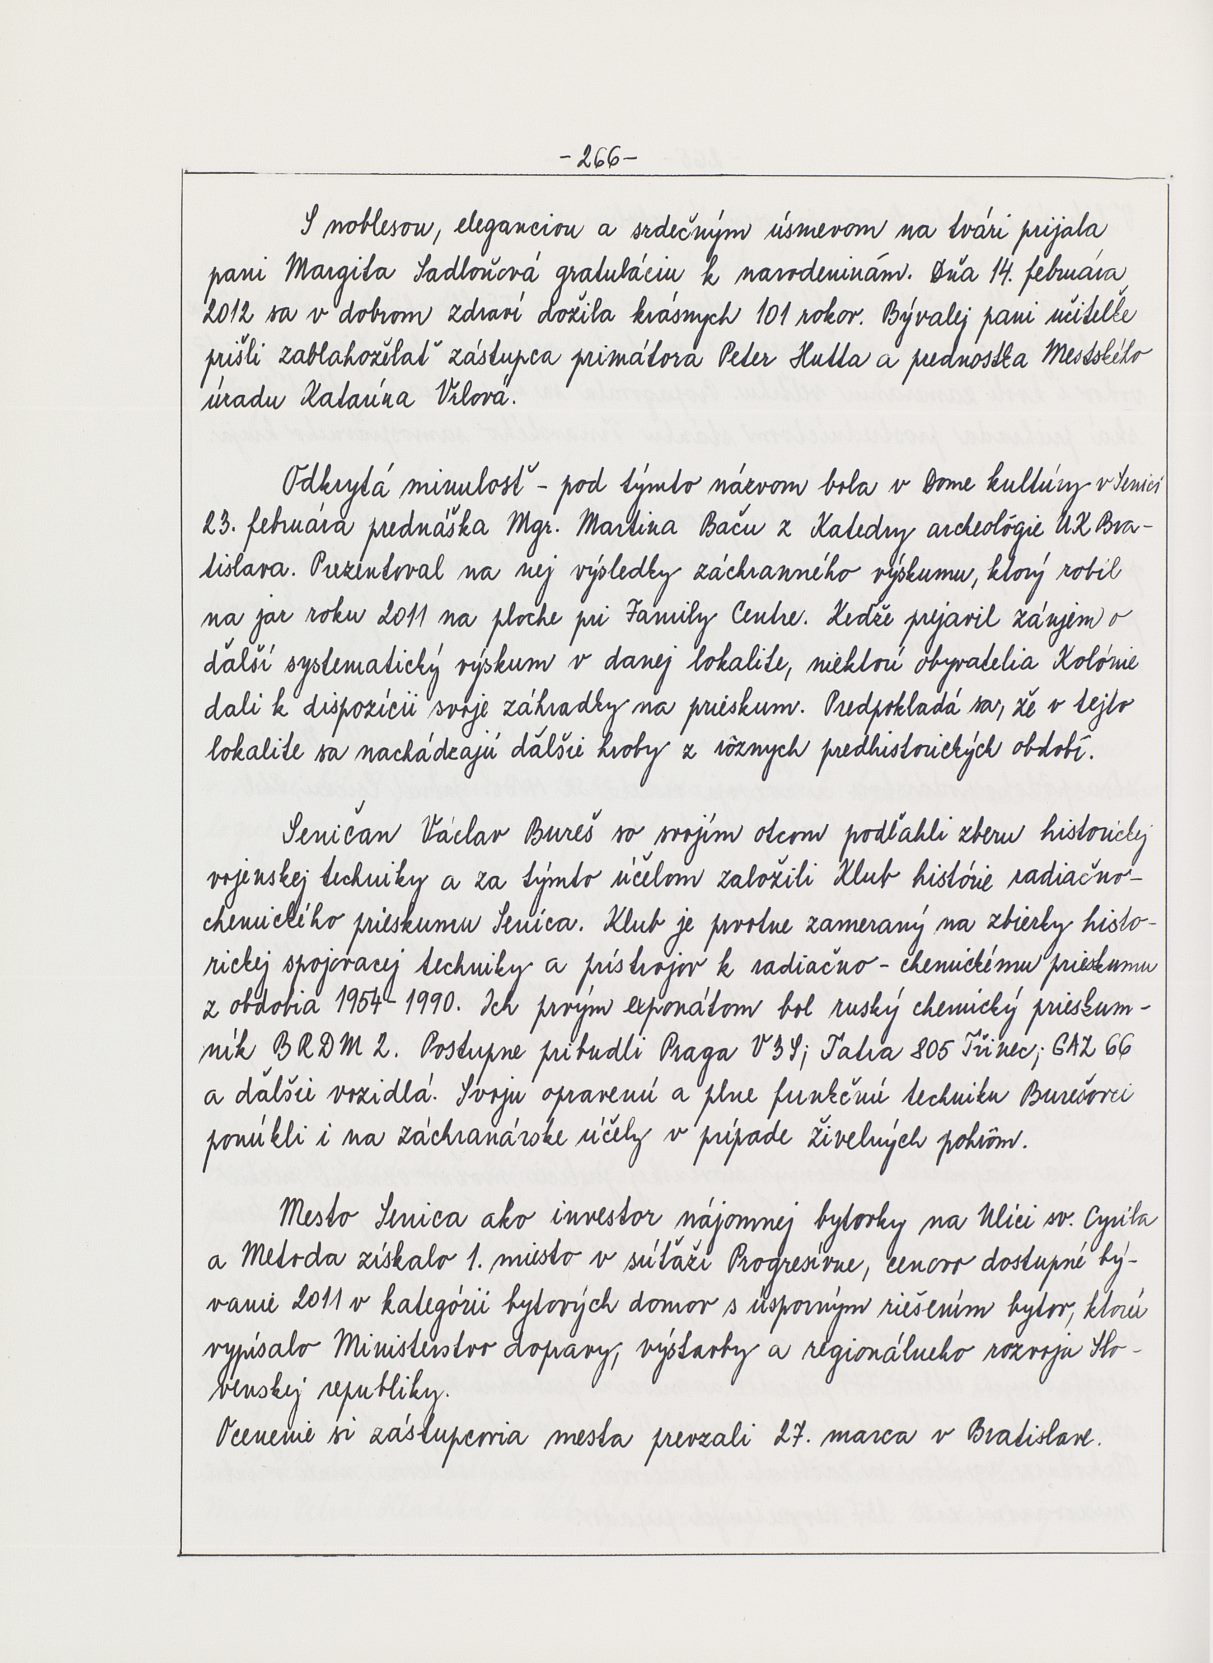 -266-
S noblesou, eleganciou a srdečným úsmevom na tvári prijala
pani Margita Sadloňová gratuláciu k narodeninám. Dňa 14. februára
2012 sa v dobrom zdraví dožila krásnych 101 rokov. Bývalej pani učiteľke
prišli zablahoželať zástupca primátora Peter Hutta a prednostka Mestského
úradu Katarína Vrlová.
Odkrytá minulosť - pod týmto názvom bola v Dome kultúry v Senici
23. februára prednáška Mgr. Martina Baču z Katedry archeológie UK Bra-
tislava. Prezentoval na nej výsledky záchranného výskumu, ktorý robil
na jar roku 2011 na ploche pri Family Centre. Keďže prejavil záujem o
ďalší systematický výskum v danej lokalite, niektorí obyvatelia Kolónie
dali k dispozícii svoje záhradky na prieskum. Predpokladá sa, že v tejto
lokalite sa nachádzajú ďalšie hroby z rôznych predhistorických období.
Seničan Václav Bureš so svojím otcom podľahli zberu historickej
vojenskej techniky a za týmto účelom založili Klub histórie radiačno-
chemického prieskumu Senica. Klub je prvotne zameraný na zbierky histo-
rickej spojovacej techniky a prístrojov k radiačno - chemickému prieskumu
z obdobia 1954-1990. Ich prvým exponátom bol ruský chemický prieskum-
ník BRDM 2. Postupne pribudli Praga V3S; Tatra 805 Třinec; GAZ 66
a ďalšie vozidlá. Svoju opravenú a plne funkčnú techniku Burešovci
ponúkli i na záchranárske účely v prípade živelných pohrôm.
Mesto Senica ako investor nájomnej bytovky na Ulici sv. Cyrila
a Metoda získalo 1. miesto v súťaži Progresívne, cenovo dostupné bý-
vanie 2011 v kategórii bytových domov s úsporným riešením bytov, ktorú
vypísalo Ministerstvo dopravy, výstavby a regionálneho rozvoja Slo-
venskej republiky.
Ocenenie si zástupcovia mesta prevzali 27. marca v Bratislave.